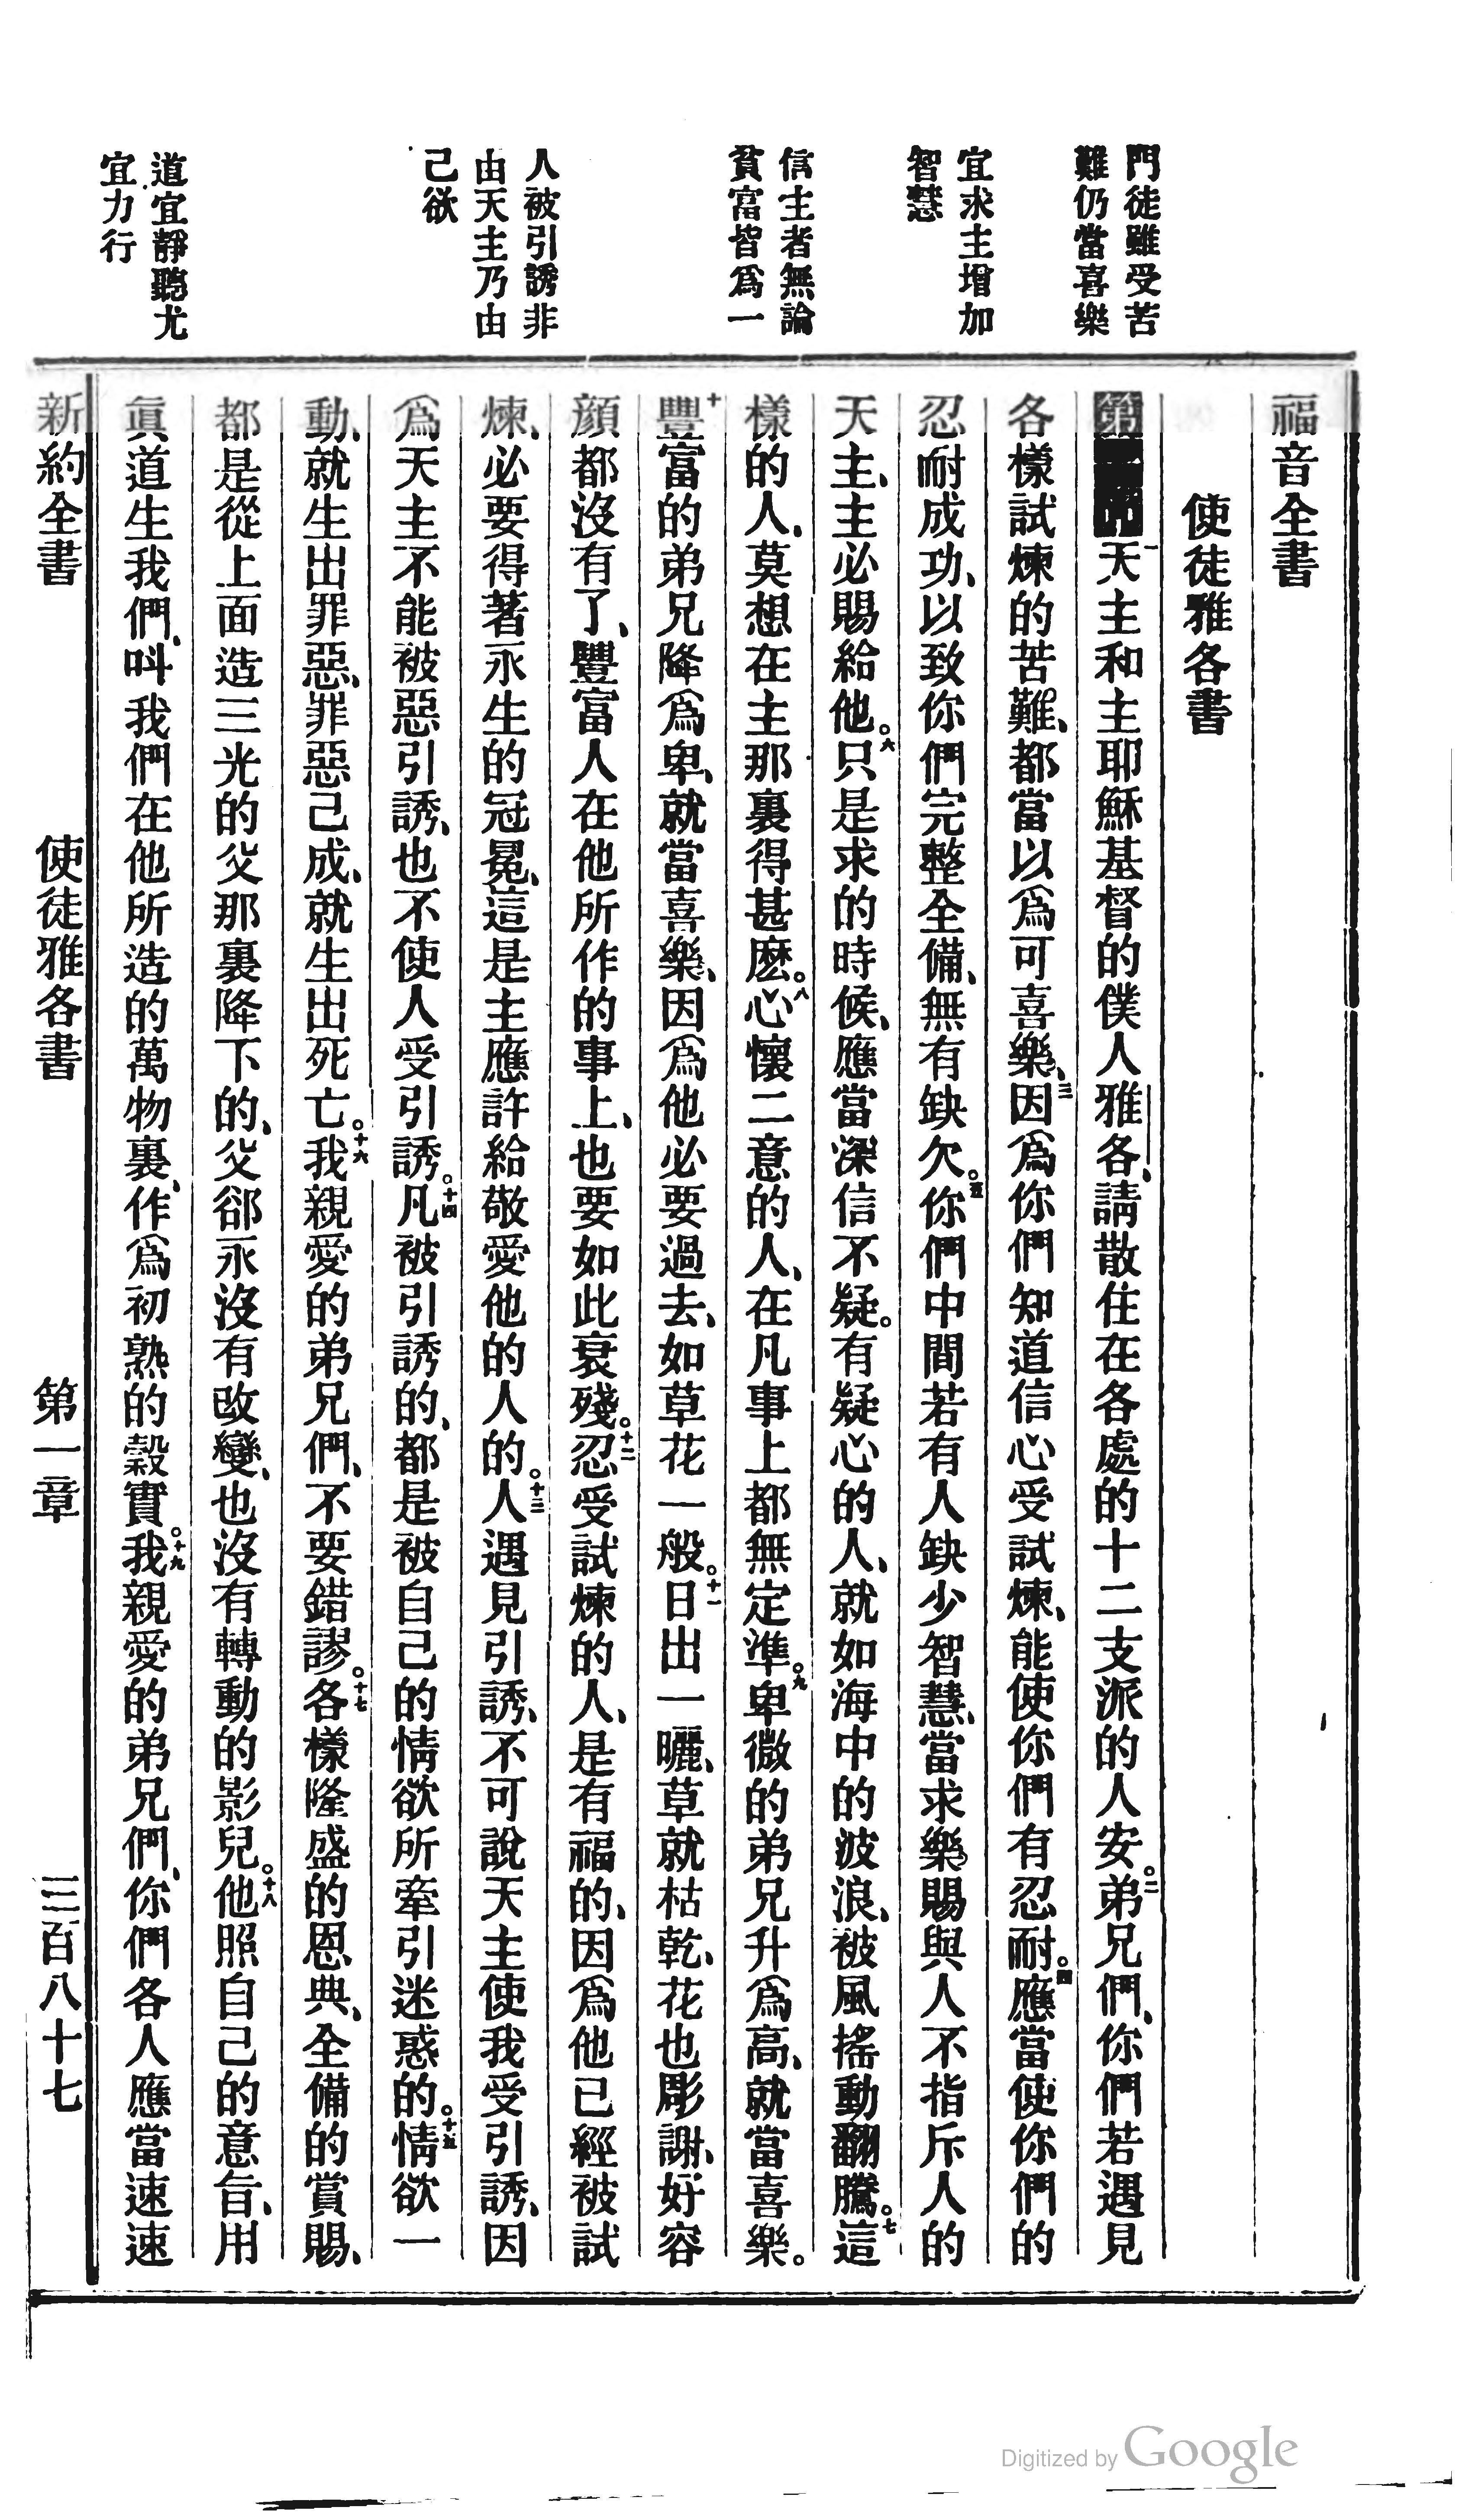 門徒雖受苦
難仍當喜樂
宜求主增加
智慧
信主者無論
貧富皆爲一
人被引誘非
由天主乃由
己欲
道宜靜聽尤
宜力行
福音全書
使徒雅各書
第一章天主和主耶穌基督的僕人雅各、請散住在各處的十二支派的人安。二弟兄們、你們若遇見
各樣試煉的苦難、都當以爲可喜樂、三因爲你們知道信心受試煉、能使你們有忍耐。四應當使你們的
忍耐成功、以致你們完整全備、無有缺欠。五你們中間若有人缺少智慧、當求樂賜與人不指斥人的
天主、主必賜給他。六只是求的時候、應當深信不疑。有疑心的人、就如海中的波浪、被風搖動翻騰。七這
樣的人、莫想在主那裏得甚麽。八心懷二意的人、在凡事上都無定準。九卑微的弟兄升爲高、就當喜樂。
十豐富的弟兄降爲卑、就當喜樂、因爲他必要過去、如草花一般。十一日出一曬、草就枯乾、花也彫謝、好容
顏都沒有了、豐富人在他所作的事上、也要如此衰殘。十二忍受試煉的人、是有福的、因爲他已經被試
煉、必要得著永生的冠冕、這是主應許給敬愛他的人的。十三人遇見引誘、不可說天主使我受引誘、因
爲天主不能被惡引誘、也不使人受引誘。十四凡被引誘的、都是被自己的情欲所牽引迷惑的。十五情欲一
動、就生出罪惡、罪惡已成、就生出死亡。十六我親愛的弟兄們、不要錯謬。十七各樣隆盛的恩典、全備的賞賜、
都是從上面造三光的父那裏降下的、父卻永沒有改變、也沒有轉動的影兒。十八他照自己的意旨、用
眞道生我們、叫我們在他所造的萬物裏、作爲初熟的穀實。十九我親愛的弟兄們、你們各人應當速速
新約全書 使徒雅各書 第一章 三百八十七
Digitized by Google